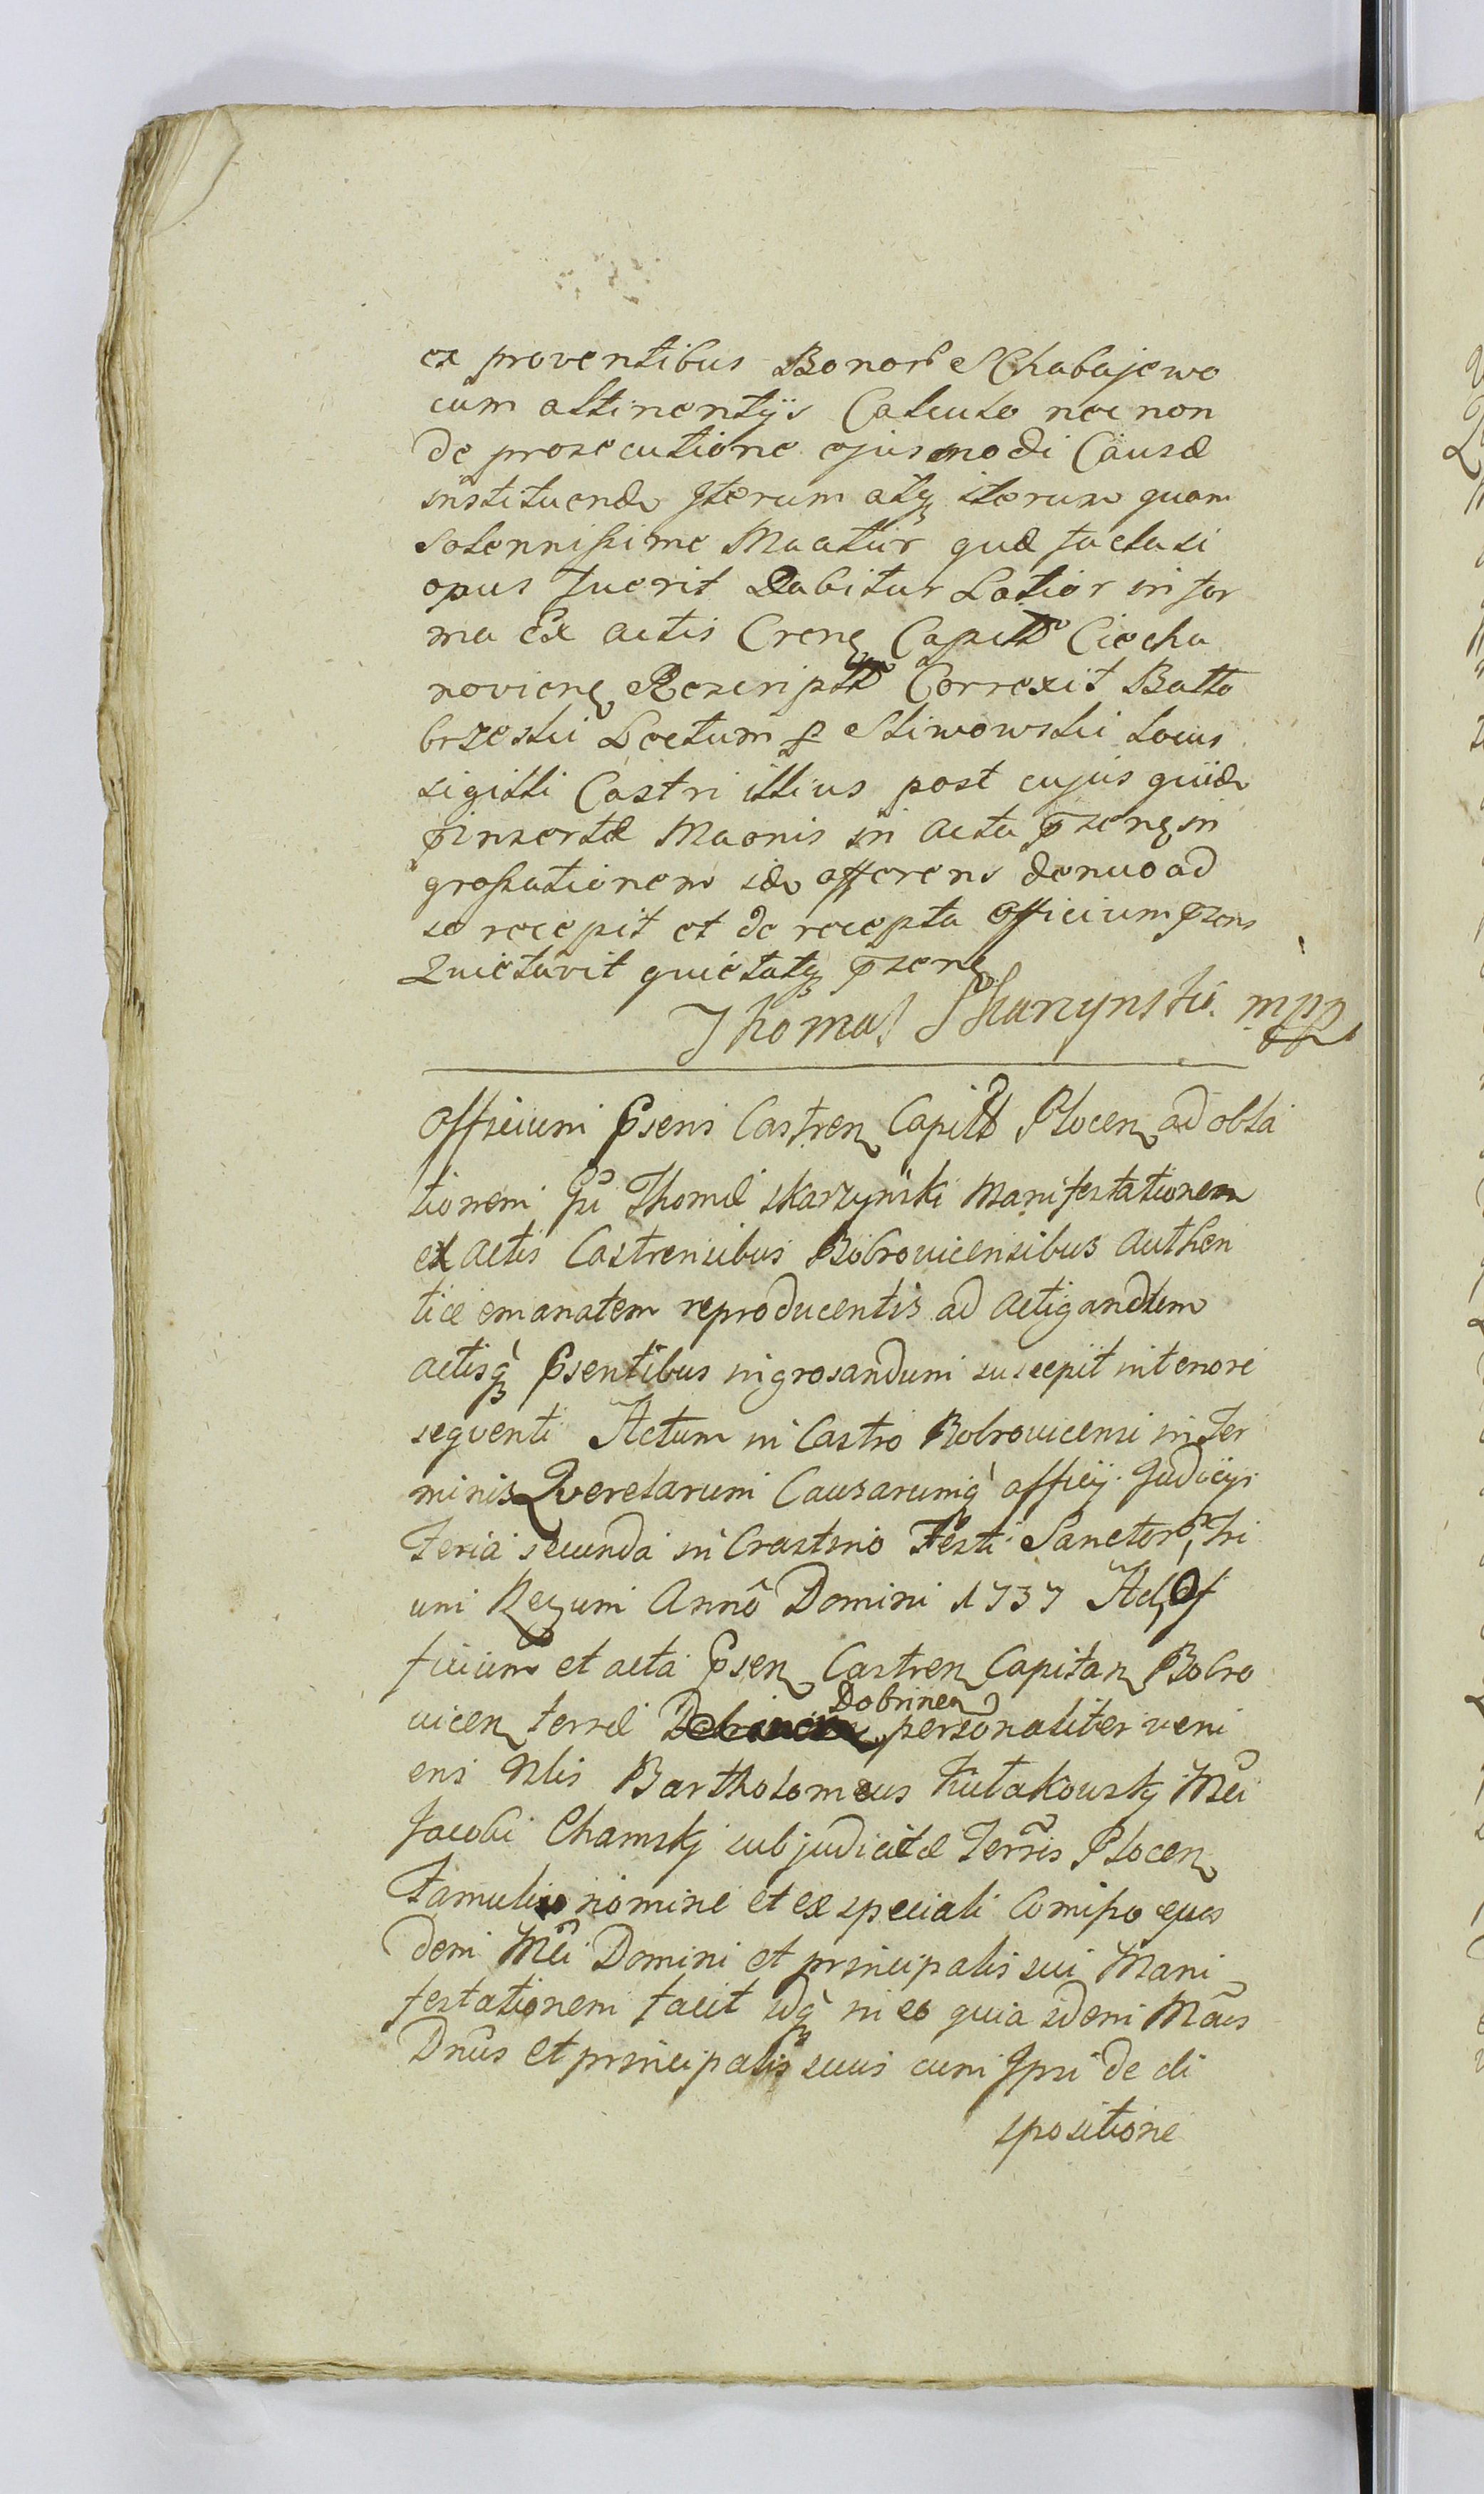 ex proventibus Bonor Chabajewo
cum attinentijs Calculo nec non
de prosecutione ejusmodi Causæ
instituendo Iterum atq iterum quam
solennissime Maatur quæ facta si
opus fuerit Dabitur Latior in for
ma Ex actis Cren Capitt Ciecha
novien Rescriptt Correxit Batto
brzeski Lectum p Sliwowski Locus
sigilli Castri illius post cujus quid
pinsertæ Maonis in acta pzen in
grossationem id offerens denuo ad
se recepit et de recepta Officium pzens
Quietavit quietatq pzen
Thomas Skarzynski mpp
Officium Psens Castren Capitt Plocen ad obla
tionem Gi Thomæ Skarzynski Manifestationem
ex actis Castrensibus Bobrovicensibus authen
tice emanatem reproducentis ad actigandum
actisq Psentibus ingrosandum suscepit in tenore
sequenti Actum in Castro Bobrovicensi in Ter
minis Querelarum Causarumq officij Judicÿ
feria secunda in Crastino Festi Sanctor Tri
um Regum Anno Domini 1737 Ad Of
ficium et acta Psen Castren Capitan Bobro
vicen terræ Dobrinen personaliter veni
ens Nlis Bartholomeus Kutakowskj Mci
Jacobi Chamskj subjudicitæ Terris Plocen
famulus nomine et ex speciali comisso ejus
dem Mci Domini et principalis sui Mani
festationem facit idq in eo quia idem Mcus
Dnus et principalis suus cum Ipsi de di
spositione